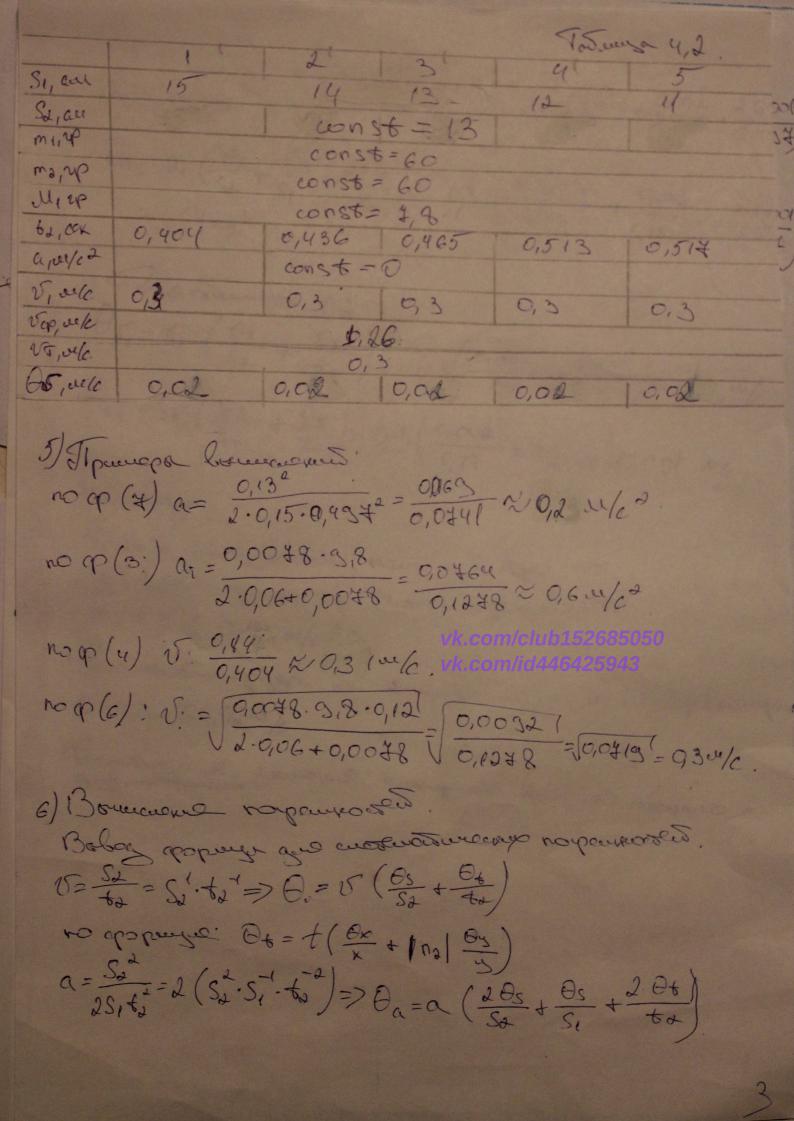 Таблица 4,2.
1 2 3 4 5
S₁, см 15 14 13 12 11
S₂, см const = 13
m₁, гр const = 60
m₂, гр const = 60
M, гр const = 7,8
t₂, сек 0,404 0,436 0,465 0,513 0,517
a, м/с² const = 0
v, м/с 0,3 0,3 0,3 0,3 0,3
vср, м/с 0,26
vт, м/с 0,3
θv, м/с 0,02 0,02 0,02 0,02 0,02
5) Примеры вычислений:
по ф (7) a = 0,13² / 2·0,15·0,497² = 0,0169 / 0,0741 ≈ 0,2 м/с²
по ф (3:) a₁ = 0,0078·9,8 / 2·0,06+0,0078 = 0,0764 / 0,1278 ≈ 0,6 м/с²
по ф (4) v: 0,14 / 0,404 ≈ 0,31 м/с.
vk.com/club152685050
vk.com/id446425943
по ф (6): v = √(0,0078·9,8·0,12 / 2·0,06+0,0078) = √(0,0092 / 0,1278) = √0,0719 = 0,3 м/с.
6) Вычисление погрешностей.
Вывод формул для систематических погрешностей.
v = S₂/t₂ = S₂¹·t₂⁻¹ => θ = v (θs/S₂ + θt/t₂)
по формуле: θt = t (θx/x + |n₂| θy/y)
a = S₂² / 2S₁t₂² = 2 (S₂²·S₁⁻¹·t₂⁻²) => θa = a (2θs/S₂ + θs/S₁ + 2θt/t₂)
3